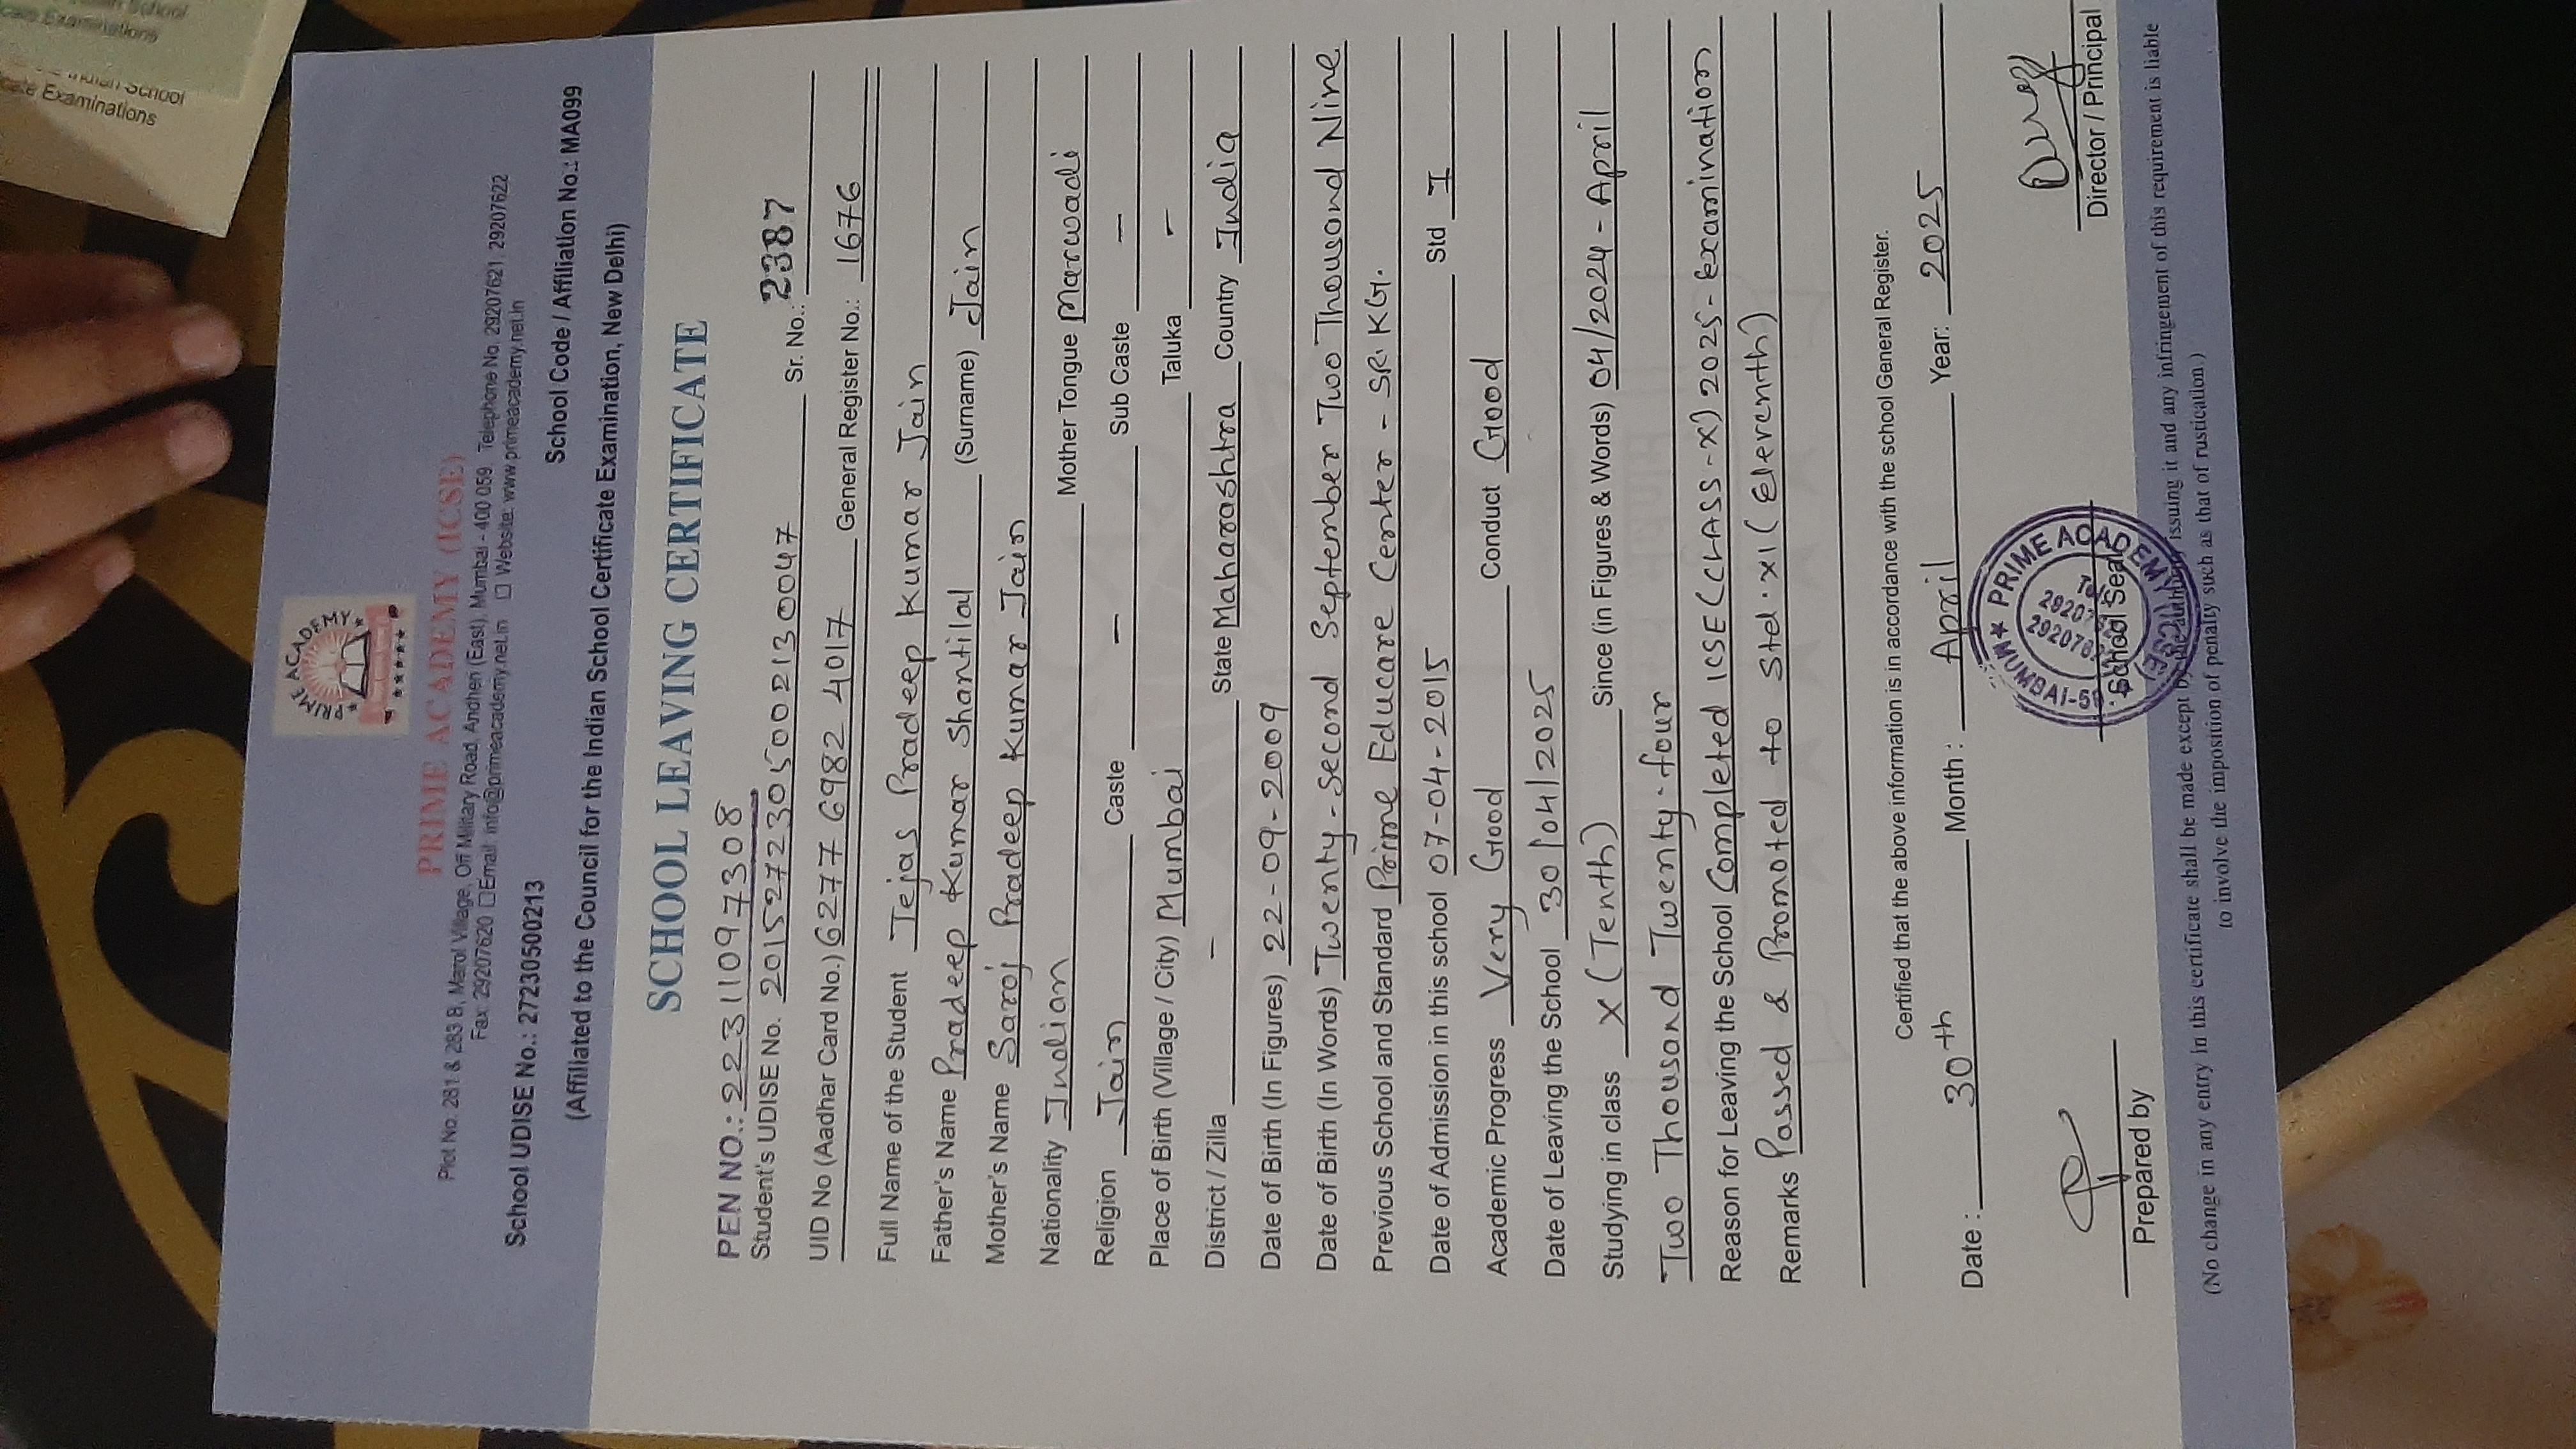 School
cate Examinations
Indian School
cate Examinations
PRIME ACADEMY
PRIME ACADEMY (ICSE)
Plot No. 281 & 283 B, Marol Village, Off Military Road, Andheri (East), Mumbai - 400 059. Telephone No. 29207621, 29207622
Fax: 29207620 Email: info@primeacademy.net.in Website: www.primeacademy.net.in
School UDISE No.: 27230500213 School Code / Affiliation No.: MA099
(Affiliated to the Council for the Indian School Certificate Examination, New Delhi)
SCHOOL LEAVING CERTIFICATE
PEN NO.: 22311097308
Student's UDISE No. 2015272305002130047 Sr. No.: 2387
UID No (Aadhar Card No.) 6277 6982 4017 General Register No.: 1676
Full Name of the Student Tejas Pradeep Kumar Jain
Father's Name Pradeep Kumar Shantilal (Surname) Jain
Mother's Name Saroj Pradeep Kumar Jain
Nationality Indian Mother Tongue Marwadi
Religion Jain Caste - Sub Caste -
Place of Birth (Village / City) Mumbai Taluka -
District / Zilla - State Maharashtra Country India
Date of Birth (In Figures) 22-09-2009
Date of Birth (In Words) Twenty-second September Two Thousand Nine
Previous School and Standard Prime Educare Center - SR.KG.
Date of Admission in this school 07-04-2015 Std I
Academic Progress Very Good Conduct Good
Date of Leaving the School 30/04/2025
Studying in class X (Tenth) Since (in Figures & Words) 04/2024 - April
Two Thousand Twenty-four
Reason for Leaving the School Completed ICSE (CLASS-X) 2025-Examination
Remarks Passed & Promoted to Std.XI (Eleventh)
Certified that the above information is in accordance with the school General Register.
Date: 30th Month: April Year: 2025
PRIME ACADEMY (ICSE) MUMBAI-59
Prepared by School Seal Director / Principal
(No change in any entry in this certificate shall be made except by the authority issuing it and any infringement of this requirement is liable
to involve the imposition of penalty such as that of rustication.)